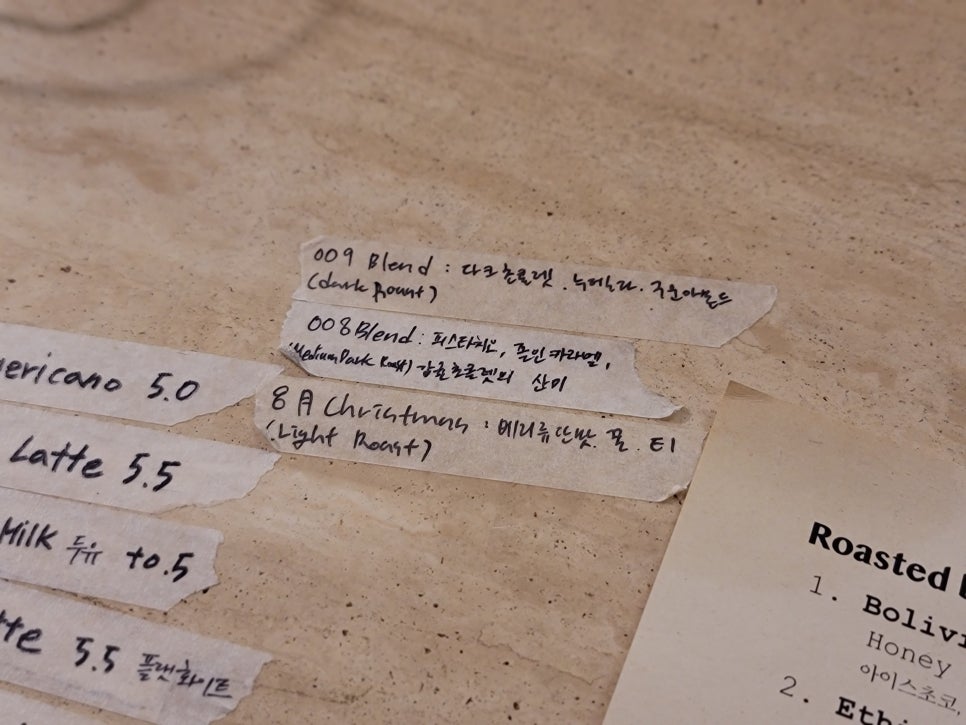 009 Blend : 다크초콜렛. 누테라. 구운아몬드
(dark Roast)
008 Blend : 피스타치오, 졸인 카라멜,
(Medium Dark Roast) 감귤초콜렛의 산미
8月 Christmas : 베리류 단맛. 꿀. 티
(Light Roast)
ericano 5.0
Latte 5.5
Milk 두유 +0.5
tte 5.5 플랫화이트
Roasted
1. Bolivi
Honey
아이스초코,
2. Ethi